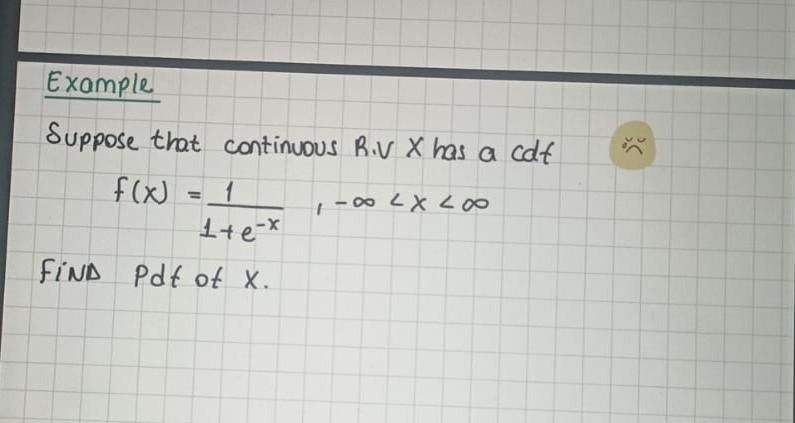 Example
Suppose that continuous R.V X has a cdf
f(x) = 1/(1+e^-x) , -∞ < x < ∞
FiND Pdf of X.